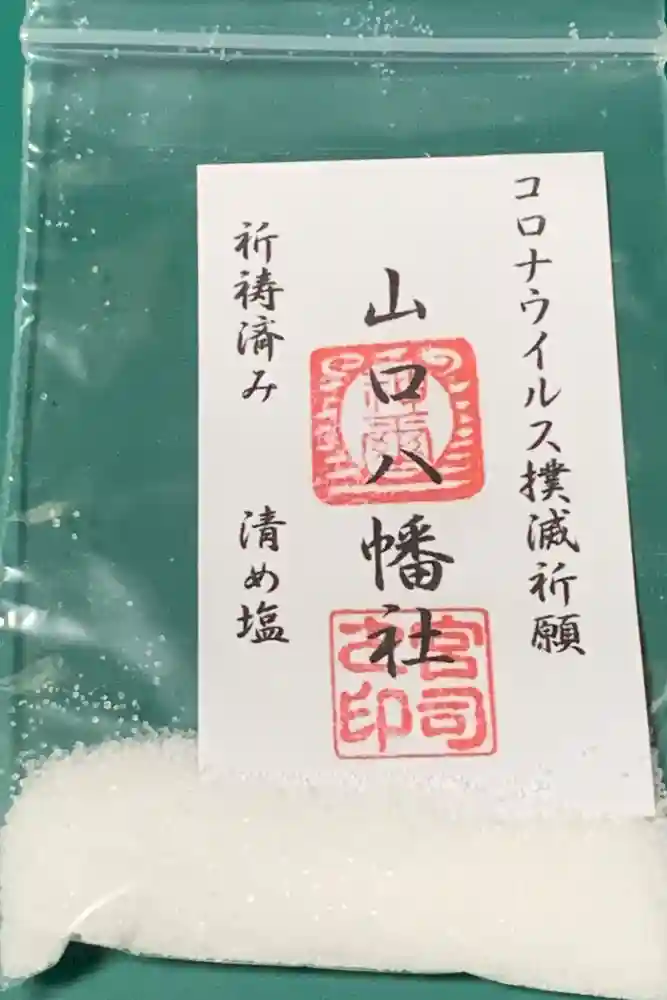 コロナウイルス撲滅祈願
山口八幡社
祈祷済み　清め塩
宮司
之印